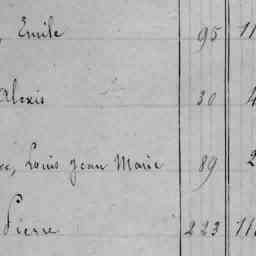 , Emile 95 11
Alexis 30 4
, Louis Jean Marie 89 2
Pierre 223 11